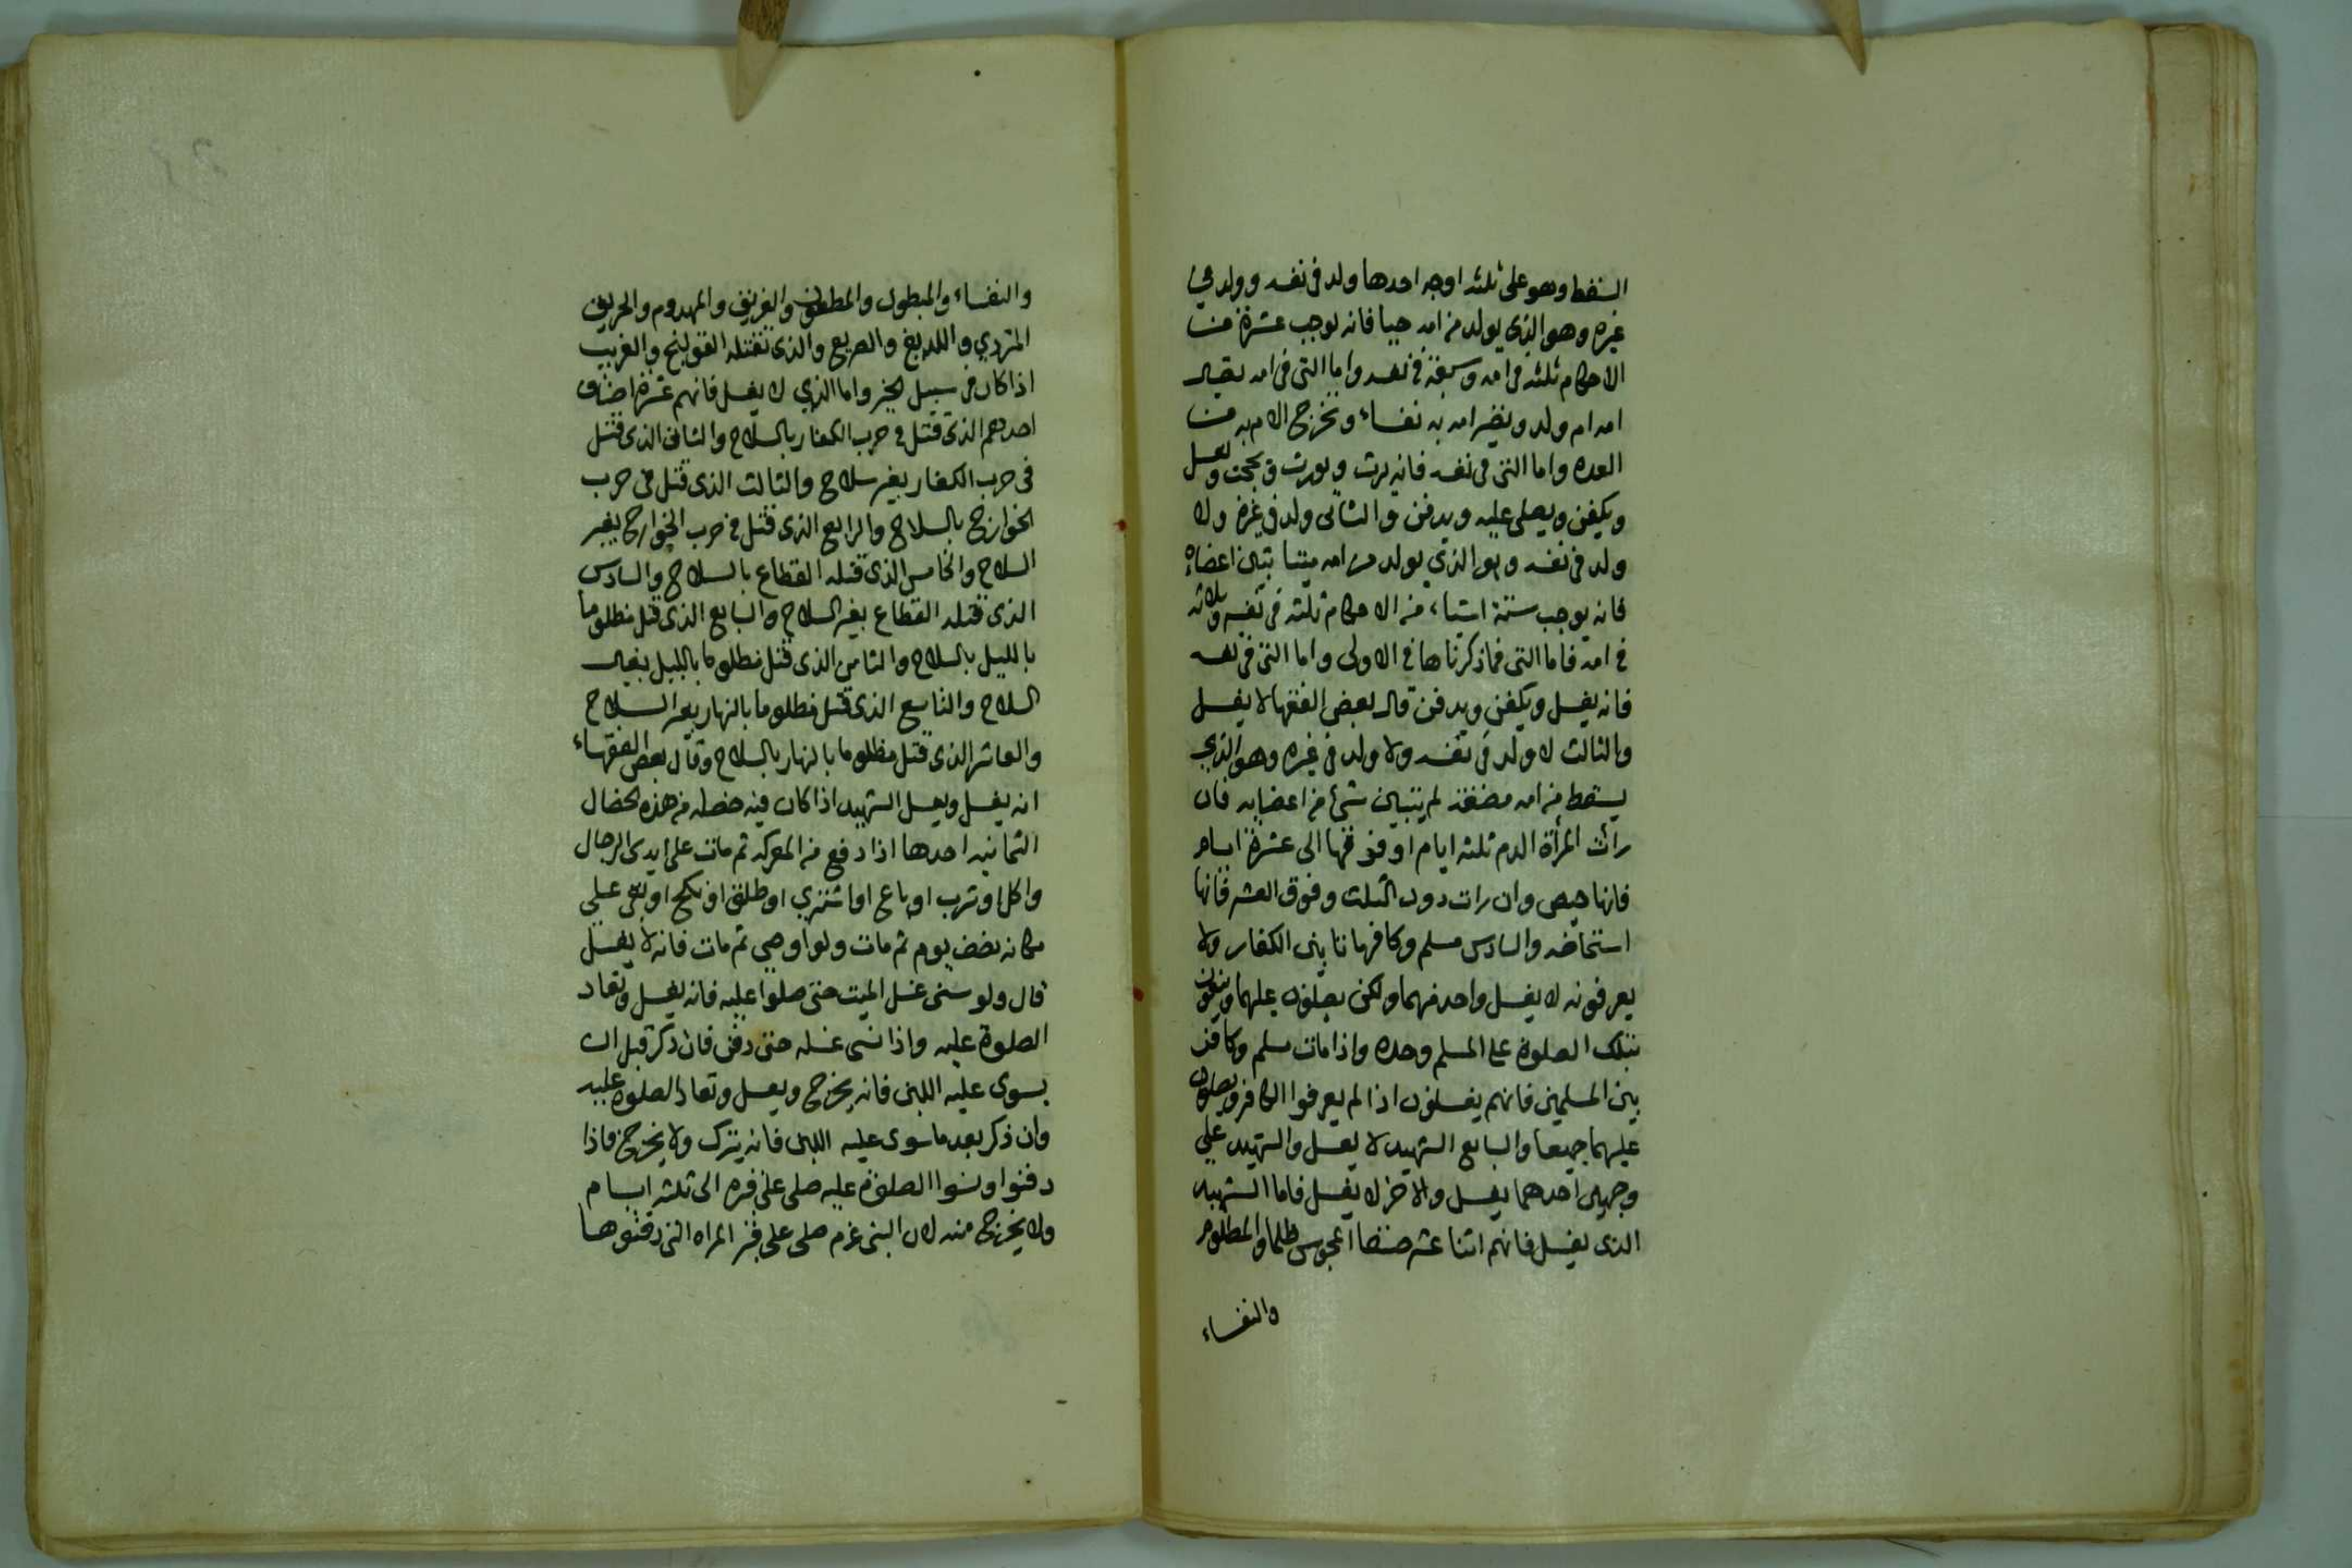 السقط وهو على ثلثه اوجه احدها ولد فى نفسه وولد في
غيره وهو الذى يولد من امه حيا فانه يوجب عشرة من
الاحكام ثلثه فى امه وسبعة فى نفسه واما التى فى امه يقال
امه ام ولد وتصير امه به نفساء وتخرج الام به من
العده واما التى فى نفسه فانه يرث ويورث ويغسل
ويكفن ويصلى عليه ويدفن والثانى ولد فى غيره ولا
ولد فى نفسه وهو الذي يولد من امه ميتا بتين اعضاه
فانه يوجب ستة اشياء من الاحكام ثلثه فى نفسه وثلاثه
فى امه فاما التى فما ذكرناها فى الاولى واما التى فى نفسه
فانه يغسل ويكفن ويدفن قال بعض الفقها لا يغسل
والثالث لا ولد فى نفسه ولا ولد فى غيره وهو الذي
يسقط من امه مضغة لم يتبين شئ من اعضايه فان
رات المرأة الدم ثلثه ايام او فوقها الى عشرة ايام
فانها حيض وان رات دون الثلث وفوق العشر فانها
استحاضه والسادس مسلم وكافر ماتا بين الكفار ولا
يعرفونه لا يغسل واحد منهما ولكن يصلون عليهما وينوون
بتلك الصلوة على المسلم وحده واذا مات مسلم وكافر
بين المسلمين فانهم يغسلون اذا لم يعرفوا الكافر ويصلون
عليهما جميعا والسابع الشهيد لا يغسل والشهيد على
وجهين احدهما يغسل والاخر لا يغسل فاما الشهيد
الذى يغسل فانهم اثنا عشر صنفا المحبوس ظلما والمظلوم
والنفساء
والنفساء والمبطول والمطعون والغريق والمهدوم والحريق
المتردي واللديغ والصريع والذى تقتله القولنج والغريب
اذا كان فى سبيل الخير واما الذي لا يغسل فانهم عشرة اصناف
احدهم الذى قتل فى حرب الكفار بالسلاح والثانى الذى قتل
فى حرب الكفار بغير سلاح والثالث الذى قتل فى حرب
الخوارج بالسلاح والرابع الذى قتل فى حرب الخوارج بغير
السلاح والخامس الذى قتله القطاع بالسلاح والسادس
الذى قتله القطاع بغير السلاح والسابع الذى قتل مظلوما
بالليل بالسلاح والثامن الذى قتل مظلوما بالليل بغير
السلاح والتاسع الذى قتل مظلوما بالنهار بغير السلاح
والعاشر الذى قتل مظلوما بالنهار بالسلاح وقال بعض الفقهاء
انه يغسل ويغسل الشهيد اذا كان فيه خصله من هذه الخصال
الثمانيه احدها اذا دفع من المعركه ثم مات على ايدى الرجال
واكل او شرب او باع او اشتري او طلق او نكح او بقى على
مكانه نصف يوم ثم مات ولو اوصى ثم مات فانه لا يغسل
قال ولو نسى غسل الميت حتى صلوا عليه فانه يغسل وتعاد
الصلوة عليه واذا نسى غسله حتى دفن فان ذكر قبل ان
يسوى عليه اللبن فانه يخرج ويغسل وتعاد الصلوة عليه
وان ذكر بعد ما سوى عليه اللبن فانه يترك ولا يخرج فاذا
دفنوا ونسوا الصلوة عليه صلى على قبره الى ثلثه ايام
ولا يخرج منه لان النبى عزم صلى على قبر المراه التى دفنوها